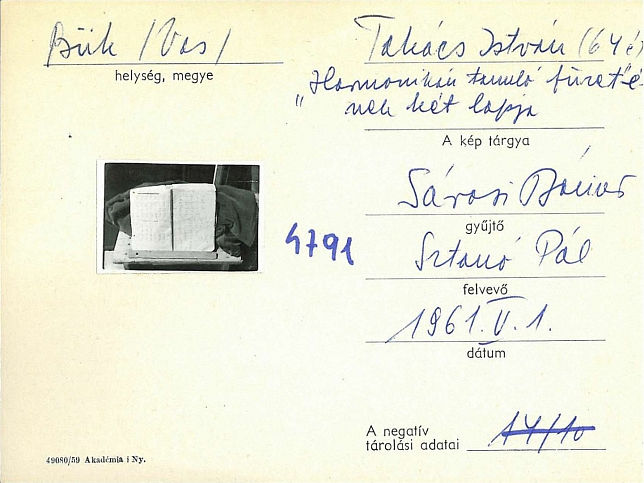 Bük /Vas/
helység, megye
Takács István (64 é)
„Harmonikán tanuló füzet"é
nek két lapja
A kép tárgya
Sárosi Bálint
gyűjtő
4791
Sztanó Pál
felvevő
1961. V. 1.
dátum
A negatív
tárolási adatai 14/10
49080/59 Akadémia i Ny.